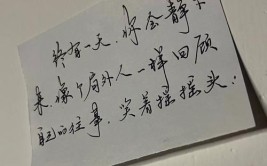 终有一天，你会静下
来，像个局外人一样回顾
自己的往事，笑着摇摇头。